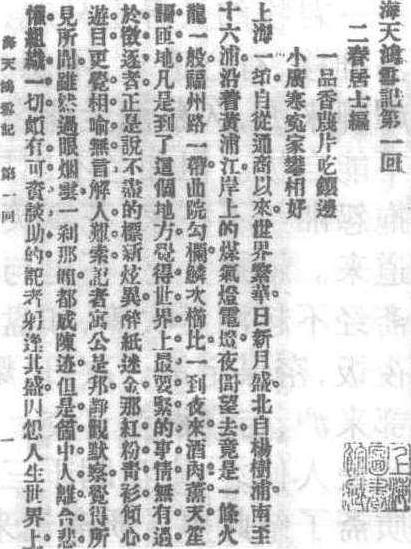 海天鴻雪記第一回
二春居士編
一品香蔑片吃鑲邊
小廣寒冤家攀相好
上海一埠自從通商以來世界繁華日新月盛北自楊樹浦南至
十六浦沿着黃浦江岸上的煤氣燈電燈夜間望去竟是一條火
龍一般福州路一帶曲院勾欄鱗次櫛比一到夜來酒肉薰天笙
謌匝地凡是到了這個地方覺得世界上最要緊的事情無有過
於徵逐者正是說不盡的標新炫異醉紙迷金那紅粉青衫傾心
遊目更覺相喻無言解人艱索記者寓公是邦靜觀默察覺得所
見所聞雖然過眼烟雲一刹那頃都成陳迹但是箇中人離合悲
懽組織一切頗有可資談助的記者躬逢其盛因怨人生世界上
海天鴻雪記 第一回 一